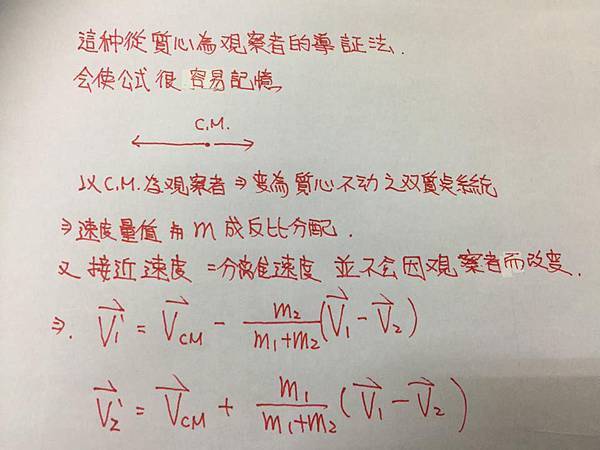 這种從質心為觀察者的導証法.
会使公式很容易記憶.
C.M.
以C.M.為觀察者⇒变為質心不动之双質点系統
⇒速度量值与m成反比分配.
又接近速度=分離速度並不会因觀察者而改变.
⇒. V⃗₁' = V⃗CM - m₂/(m₁+m₂) (V⃗₁ - V⃗₂)
V⃗₂' = V⃗CM + m₁/(m₁+m₂) (V⃗₁ - V⃗₂)